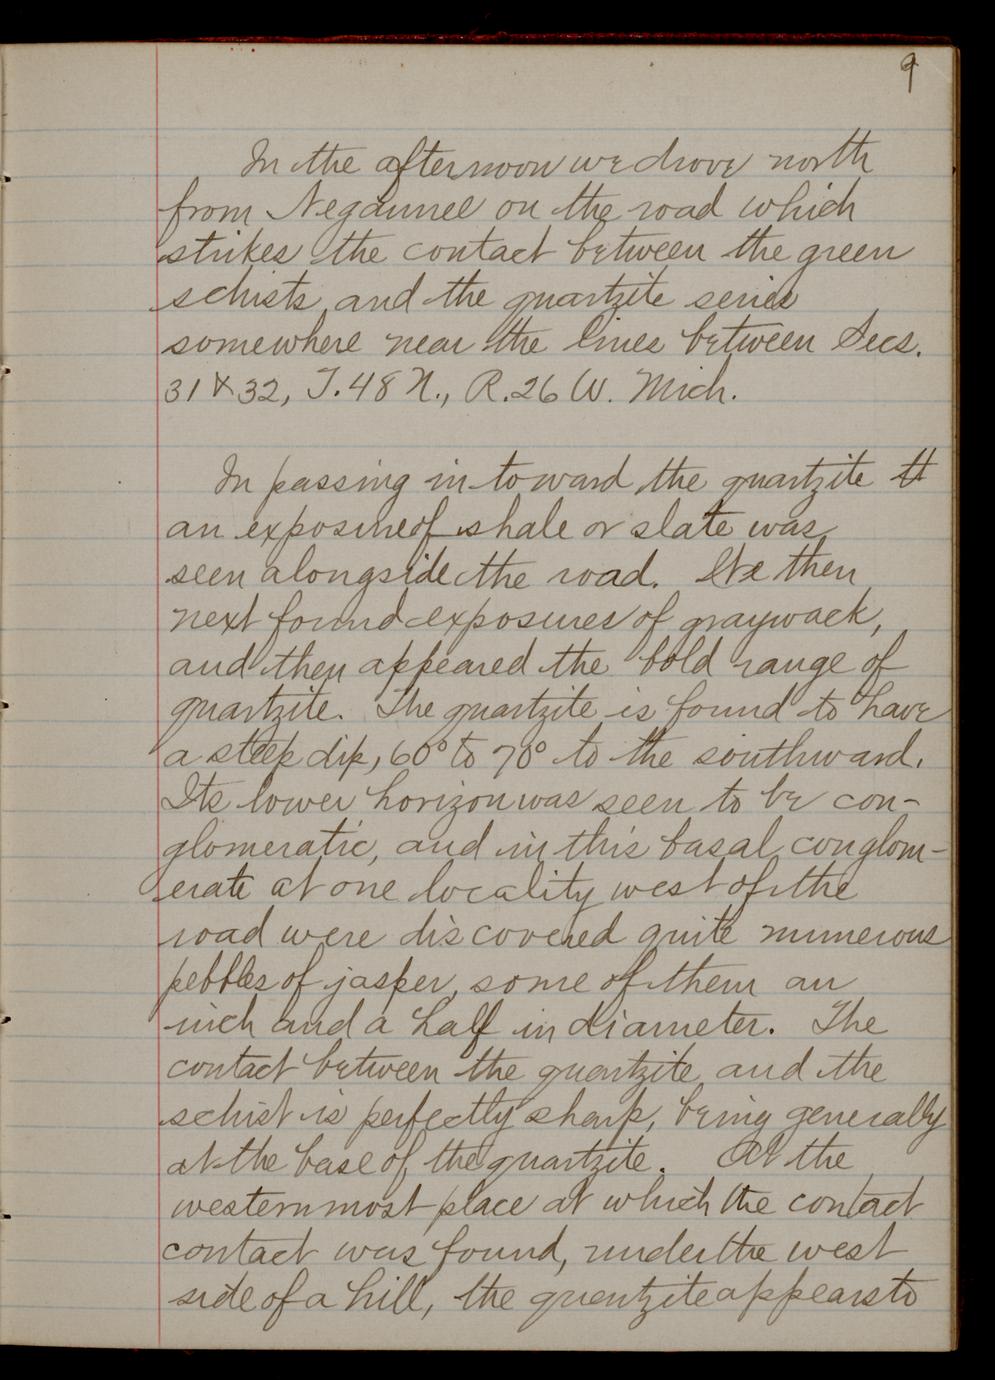 9
In the afternoon we drove north
from Negaunee on the road which
strikes the contact between the green
schists and the quartzite series
somewhere near the lines between Secs.
31 & 32, T. 48 N., R. 26 W. Mich.
In passing in toward the quartzite
an exposure of shale or slate was
seen alongside the road. We then
next found exposures of graywack,
and then appeared the bold range of
quartzite. The quartzite is found to have
a steep dip, 60° to 70° to the southward.
Its lower horizon was seen to be con-
glomeratic, and in this basal conglom-
erate at one locality west of the
road were discovered quite numerous
pebbles of jasper, some of them an
inch and a half in diameter. The
contact between the quartzite and the
schist is perfectly sharp, being generally
at the base of the quartzite. At the
westernmost place at which the contact
contact was found, under the west
side of a hill, the quartzite appears to